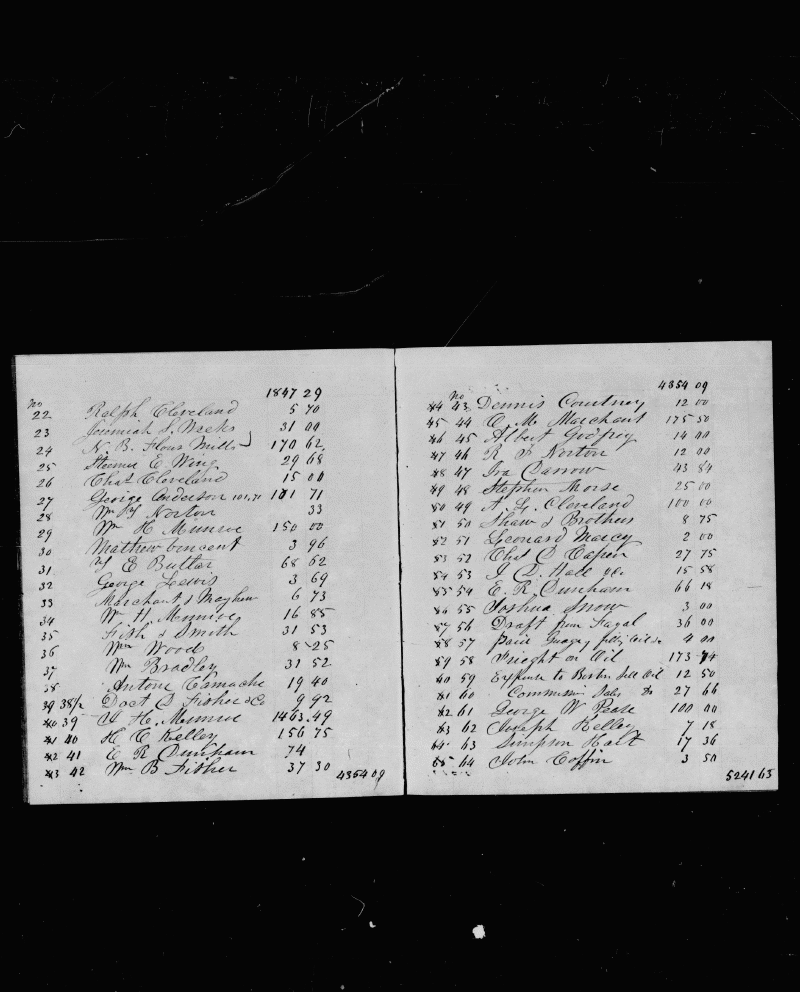 1847 29
No
22 Ralph Cleveland 5 70
23 Jeremiah S. Weeks 31 00
24 N. B. Flour Mills 170 62
25 Steamer E Wing 29 68
26 Chas Cleveland 15 00
27 George Anderson 101.71 101 71
28 Wm Norton 33
29 Wm H Munroe 150 00
30 Mathew Vincent 3 96
31 E Butler 68 52
32 George Lewis 3 69
33 Marchant & Mayhew 6 73
34 Wm H. Munroe 16 85
35 Fish & Smith 31 53
36 Wm Wood 8-25
37 Wm Bradley 31 52
38 Antone Camache 19 40
39 38/2 Doct D Fisher & Co 9 92
40 39 H. Munroe 1463.49
41 40 H C Kelley 156 75
42 41 E R Dunham 74
43 42 Wm B Fisher 37 30 4354 09
4354 09
No
44 43 Dennis Courtney 12 00
45 44 C. M. Marchant 175 50
46 45 Albert Godfrey 14 00
47 46 R Norton 12 00
48 47 Ira Darrow 43 84
49 48 Stephen Morse 25 00
50 49 A. L. Cleveland 100 00
51 50 Shaw & Brothers 8 75
52 51 Leonard Marcy 2 00
53 52 Chas D 27 75
54 53 D. Hall 15 58
55 54 E. R. Dunham 66 18
56 55 Joshua Snow 3 00
57 56 Draft from Fayal 36 00
58 57 paid Guaging 4 00
59 58 Frieght on Oil 173 74
40 59 Expense to Boston Sell Oil 12 50
41 60 Commission Sales 27 66
42 61 George W Pease 100 00
43 62 Joseph Kelley 7 18
64 63 Simpson Hart 17 36
65 64 John Coffin 3 50
5241 63